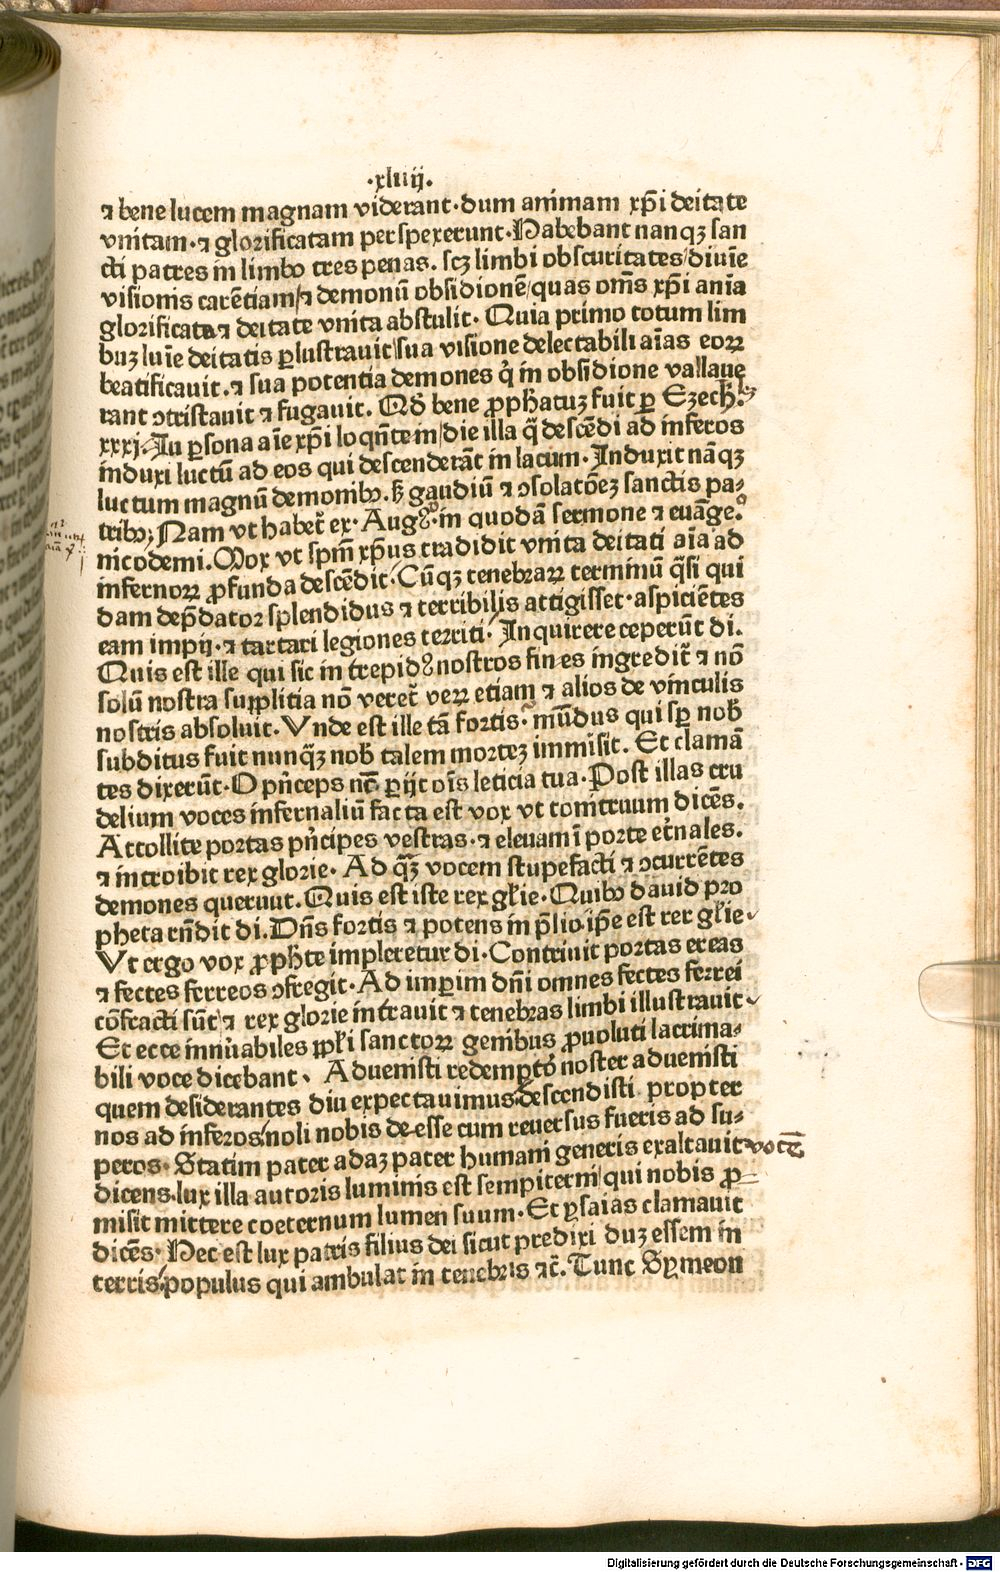 ·xliiij·
⁊ bene lucem magnam viderant·dum animam xp̄i deitate
vnitam·⁊ glorificatam perspexerunt·Habebant nanqꝫ san
cti patres in limbo tres penas. scꝫ limbi obscuritates/diuīe
visionis carētiam/⁊ demonū obsidionē/quas om̄s xp̄i anīa
glorificata⁊ deitate vnita abstulit· Quia primo totum lim
buꝫ luīe deitatis ꝑlustrauit/sua visione delectabili aīas eoꝝ
beatificauit.⁊ sua potentia demones q̇ in obsidione vallaue
rant ↄtristauit ⁊ fugauit. Qd̄ bene ꝓph̄atuꝫ fuit ꝑ Ezech̄.
xxxj.In ꝑsona aīe xp̄i loqn̄tem/die illa q̄ descēdi ad inferos
induxi luctū ad eos qui descenderāt in lacum·Induxit nāqꝫ
luctum magnū demonibꝰ.ꝫ gaudiū ⁊ ↄsolatōeꝫ sanctis pa-
tribꝰ; Nam vt habet᷑ ex·Augꝰ·in quodā sermone ⁊ euāge.
nicodemi.Mox vt spm̄ xp̄us tradidit vnita deitati aīa ad
infernoꝝ ꝓfunda descēdit·Cūqꝫ tenebraꝝ terminū q̄si qui
dam dep̄dator splendidus ⁊ terribilis attigisset·aspiciētes
eam impij·⁊ tartari legiones territi·Inquirere ceperūt di.
Quis est ille qui sic intrepidꝰ nostros fines ingredit᷑ ⁊ nō
solū nostra supplitia nō veret᷑ veꝝ etiam ⁊ alios de vinculis
nostris absoluit.Vnde est ille tā fortis·mūdus qui sꝑ nob̄
subditus fuit nunq̄ꝫ nob̄ talem morteꝫ immisit. Et clamā
tes dixerūt·O pn̄ceps nc̄ ꝑijt oīs leticia tua·Post illas cru
delium voces infernaliū facta est vox vt tonitruum dicēs.
Attollite portas pn̄cipes vestras·⁊ eleuamī porte et᷑nales.
⁊ introibit rex glorie· Ad q̄ꝫ vocem stupefacti ⁊ ↄcurrētes
demones querunt.Quis est iste rex gl̄ie·Quibꝰ dauid pro
pheta rn̄dit di.Dn̄s fortis ⁊ potens in p̄lio.ip̄e est rex gl̄ie
Vt ergo vox ꝓph̄te impleretur di·Contriuit portas ereas
⁊ fectes ferreos ↄfregit·Ad imꝑim dn̄i omnes fectes ferrei
cōfracti sūt/⁊ rex glorie intrauit ⁊ tenebras limbi illustrauit
Et ecce innūabiles ppl̄i sanctoꝝ genibus ꝓuoluti lacrima-
bili voce dicebant Aduenisti redemptō noster aduenisti
quem desiderantes diu expectauimus.descendisti propter
nos ad inferos/noli nobis de-esse cum reuersus fueris ad su-
peros·Statim pater adaꝫ pater humani generis exaltauit vocē
dicens.lux illa autoris luminis est sempiterni/qui nobis ꝓ-
misit mittere coeternum lumen suum·Et ysaias clamauit
dicēs·Hec est lux patris filius dei sicut predixi duꝫ essem in
terris/populus qui ambulat in tenebris ⁊c̄. Tunc Symeon
Digitalisierung gefördert durch die Deutsche Forschungsgemeinschaft - DFG